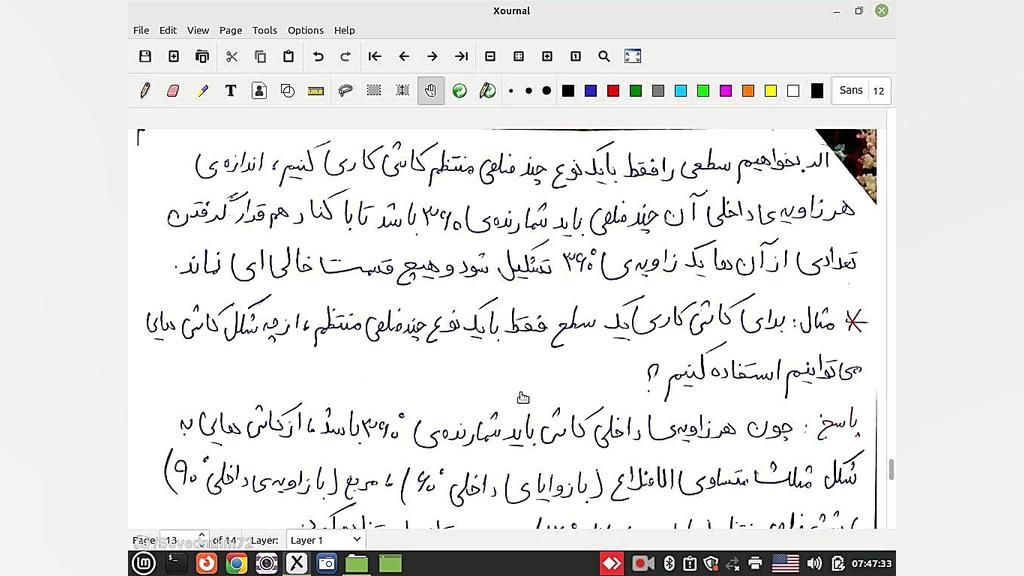 Xournal
File Edit View Page Tools Options Help
Sans 12
اگر بخواهیم سطحی را فقط با یک نوع چند ضلعی منتظم کاشی کاری کنیم، اندازه‌ی
هر زاویه‌ی داخلی آن چند ضلعی باید شمارنده‌ی ۳۶۰ باشد تا با کنار هم قرار گرفتن
تعدادی از آن ها یک زاویه‌ی ۳۶۰° تشکیل شود و هیچ قسمت خالی ای نماند.
* مثال: برای کاشی کاری یک سطح فقط با یک نوع چند ضلعی منتظم، از چه شکل کاشی هایی
می توانیم استفاده کنیم؟
پاسخ: چون هر زاویه‌ی داخلی کاشی باید شمارنده‌ی ۳۶۰° باشد، از کاشی هایی به
شکل مثلث متساوی الاضلاع (با زوایای داخلی ۶۰°)، مربع (با زاویه‌ی داخلی ۹۰°)
Page: 13 of 14 Layer: Layer 1
07:47:33